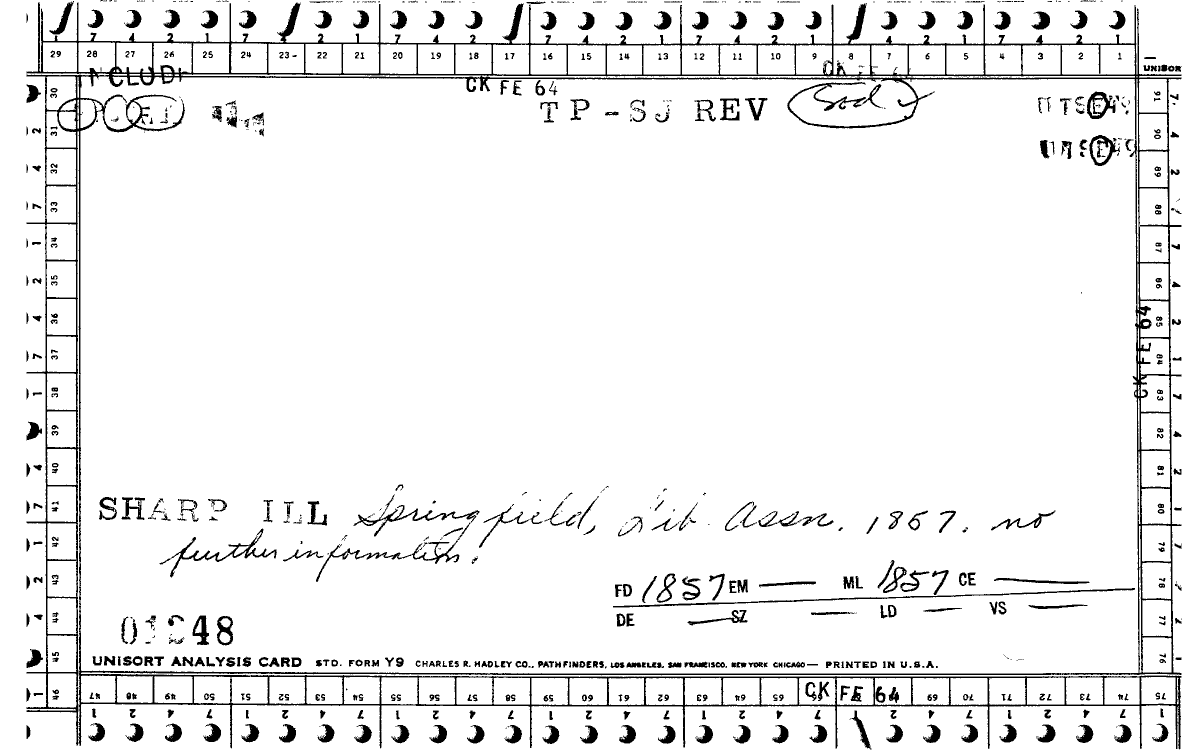 7 4 2 1 7 4 2 1 7 4 2 1 7 4 2 1 7 4 2 1 7 4 2 1 7 4 2 1
29 28 27 26 25 24 23 22 21 20 19 18 17 16 15 14 13 12 11 10 9 8 7 6 5 4 3 2 1
UNISOR
CK FE 64
CK FE 64
TP-SJ REV Sod
30 31 32 33 34 35 36 37 38 39 40 41 42 43 44 45 46
91 90 89 88 87 86 85 84 83 82 81 80 79 78 77 76
CK FE 64
SHARP ILL Springfield, Lib. Assn. 1857. no
further information.
FD 1857 EM — ML 1857 CE —
DE — SZ — LD — VS —
01248
UNISORT ANALYSIS CARD STD. FORM Y9 CHARLES R. HADLEY CO., PATHFINDERS, LOS ANGELES, SAN FRANCISCO, NEW YORK CHICAGO — PRINTED IN U.S.A.
CK FE 64
47 48 49 50 51 52 53 54 55 56 57 58 59 60 61 62 63 64 65 69 70 71 72 73 74 75